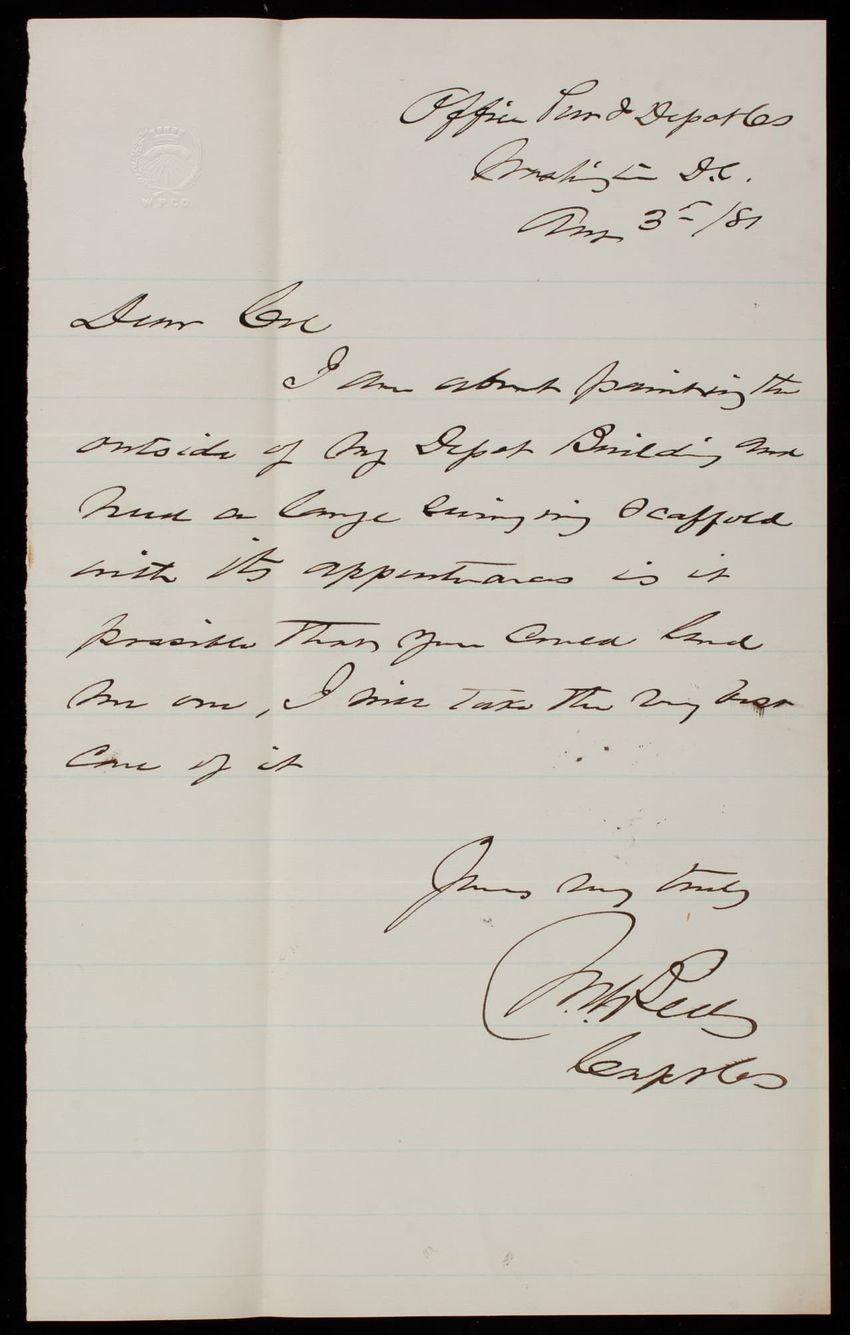 W P CO
Office Pur & Depot CS
Washington D.C.
Aug 3rd /81
Dear Col
I am about painting the
outside of my Depot Building and
need a large swinging Scaffold
with its appurtenances is it
possible that you could lend
me one, I will take the very best
care of it
Yours very truly
Capt CS